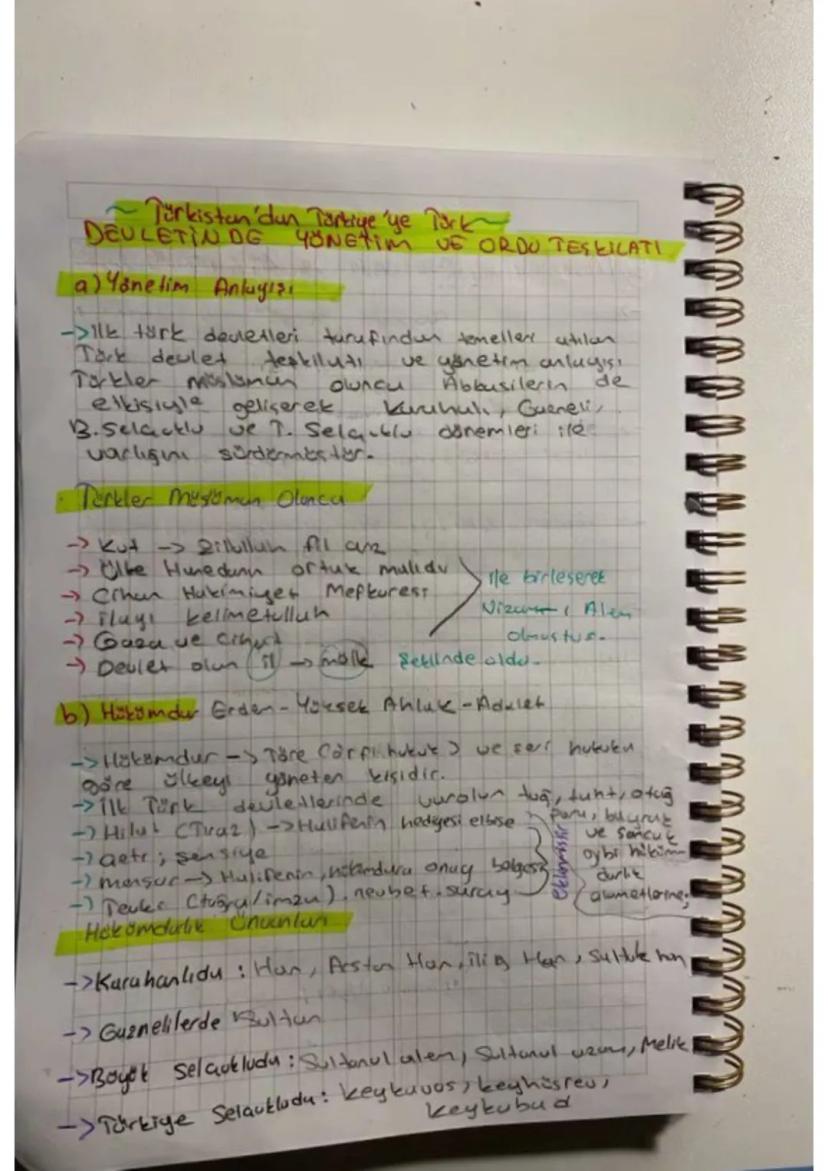 ~ Türkistan'dan Türkiye'ye Türk ~
DEVLETİNDE YÖNETİM VE ORDU TEŞKİLATI
a) Yönetim Anlayışı
-> İlk türk devletleri tarafından temelleri atılan
Türk devlet teşkilatı ve yönetim anlayışı
Türkler müslüman olunca Abbasilerin de
etkisiyle gelişerek Karahanlı, Gazneli,
B. Selçuklu ve T. Selçuklu dönemleri ile
varlığını sürdürmüştür.
Türkler Müslüman Olunca
-> Kut -> Zillullah fil arz
-> Ülke Hanedanın ortak malıdır
-> Cihan Hakimiyet Mefkuresi
-> ilayı kelimetullah
-> Gaza ve Cihat
ile birleşerek
Nizam-ı Alem
olmuştur.
-> Devlet olan il -> mülk şeklinde oldu.
b) Hükümdar Erdem - Yüksek Ahlak - Adalet
-> Hükümdar -> Töre (örfi hukuk) ve şeri hukuka
göre ülkeyi yöneten kişidir.
-> İlk Türk devletlerinde varolan tuğ, taht, otağ
para, buyruk
ve sancak
gibi hüküm
darlık
alametlerine;
-> Hilat (Tıraz) -> Halifenin hediyesi elbise
-> çetr; şemsiye
-> menşur -> Halifenin, hükümdara onay belgesi
-> Tevki (tuğra/imza). nevbet. saray
eklenmiştir
Hükümdarlık Ünvanları
-> Karahanlıda : Han, Arslan Han, ilig Han, Saltuk han
-> Gaznelilerde Sultan
-> Büyük Selçukluda : Sultanul alem, Sultanul azam, Melik
-> Türkiye Selçukluda : keykavus, keyhüsrev,
keykubad